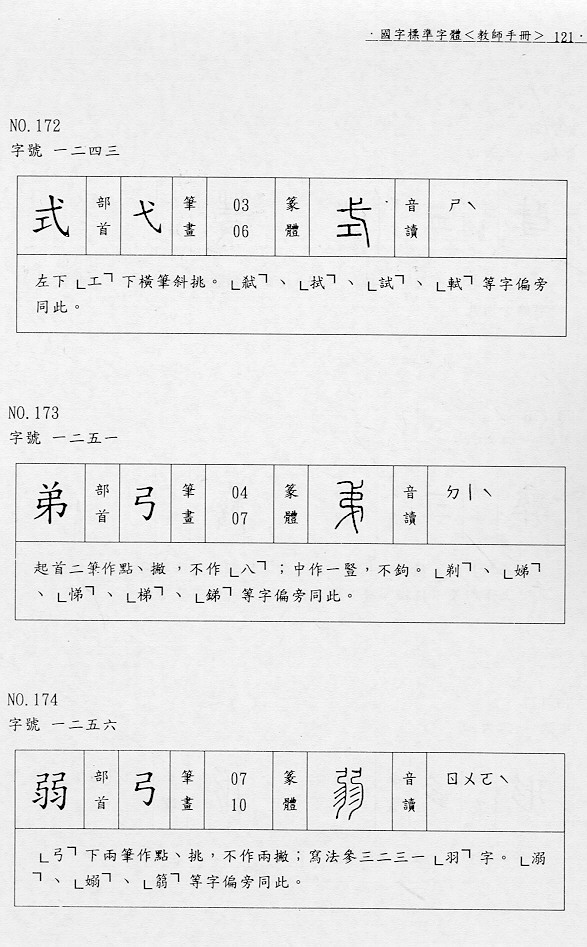 ·國字標準字體＜教師手冊＞ 121·
NO.172
字號 一二四三
式 部首 弋 筆畫 03 06 篆體 音讀 ㄕˋ
左下「工」下橫筆斜挑。「弒」、「拭」、「試」、「軾」等字偏旁
同此。
NO.173
字號 一二五一
弟 部首 弓 筆畫 04 07 篆體 音讀 ㄉㄧˋ
起首二筆作點、撇，不作「八」；中作一豎，不鉤。「剃」、「娣」
、「悌」、「梯」、「銻」等字偏旁同此。
NO.174
字號 一二五六
弱 部首 弓 筆畫 07 10 篆體 音讀 ㄖㄨㄛˋ
「弓」下兩筆作點、挑，不作兩撇；寫法參三二三一「羽」字。「溺
」、「嫋」、「篛」等字偏旁同此。